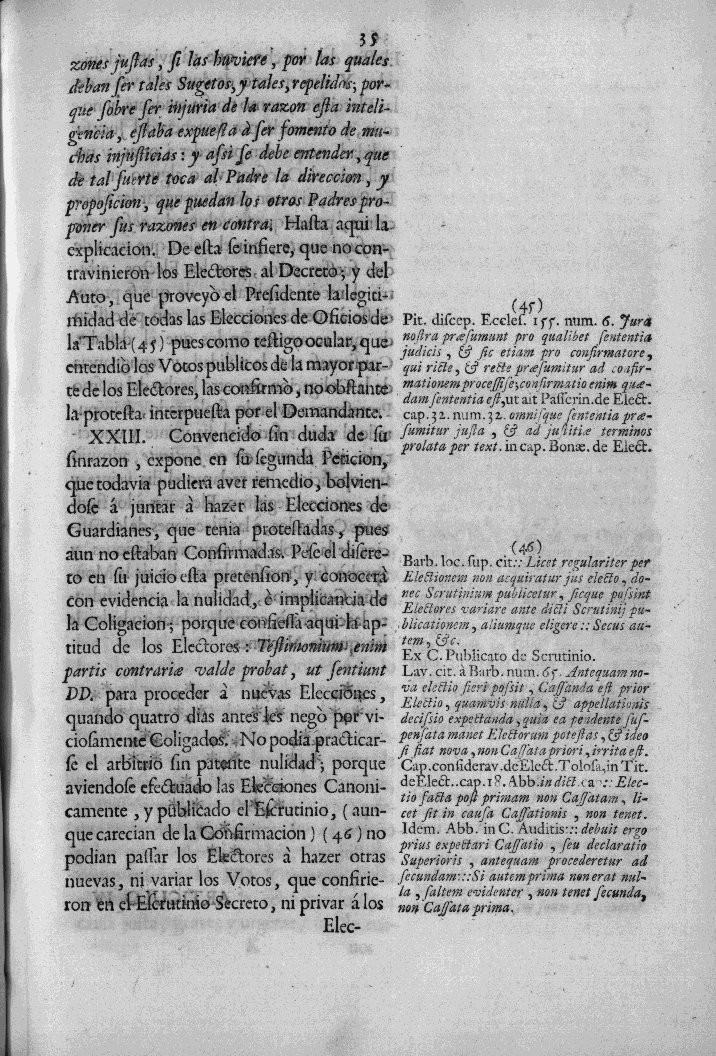 35
zones justas, si las huviere, por las quales
deban ser tales Sugetos, y tales, repelidos; por-
que sobre ser injuria de la razon esta inteli-
gencia, estaba expuesta à ser fomento de mu-
chas injusticias: y assi se debe entender, que
de tal suerte toca al Padre la direccion, y
proposicion, que puedan los otros Padres pro-
poner sus razones en contra. Hasta aqui la
explicacion. De esta se infiere, que no con-
travinieron los Electores al Decreto; y del
Auto, que proveyò el Presidente la legiti-
midad de todas las Elecciones de Oficios de
la Tabla (45) pues como testigo ocular, que
entendiò los Votos publicos de la mayor par-
te de los Electores, las confirmò, no obstante
la protesta interpuesta por el Demandante.
XXIII. Convencido sin duda de su
sinrazon, expone en su segunda Peticion,
que todavia pudiera aver remedio, bolvien-
dose á juntar à hazer las Elecciones de
Guardianes, que tenia protestadas, pues
aun no estaban Confirmadas. Pese el discre-
to en su juicio esta pretension, y conocerà
con evidencia la nulidad, è implicancia de
la Coligacion; porque confiessa aqui la ap-
titud de los Electores: Testimonium enim
partis contrariæ valde probat, ut sentiunt
DD. para proceder à nuevas Elecciones,
quando quatro dias antes les negò por vi-
ciosamente Coligados. No podia practicar-
se el arbitrio sin patente nulidad; porque
aviendose efectuado las Elecciones Canoni-
camente, y publicado el Escrutinio, (aun-
que carecian de la Confirmacion) (46) no
podian passar los Electores à hazer otras
nuevas, ni variar los Votos, que confirie-
ron en el Escrutinio Secreto, ni privar á los
Elec-
(45)
Pit. discep. Eccles. 155. num. 6. Jura
nostra præsumunt pro qualibet sententia
judicis, & sic etiam pro confirmatore,
qui ricte, & recte præsumitur ad confir-
mationem processisse, confirmatio enim quæ-
dam sententia est, ut ait Passerin. de Elect.
cap. 32. num. 32. omnisque sententia præ-
sumitur justa, & ad justitiæ terminos
prolata per text. in cap. Bonæ. de Elect.
(46)
Barb. loc. sup. cit:: Licet regulariter per
Electionem non acquiratur jus electo, do-
nec Scrutinium publicetur, sicque possint
Electores variare ante dicti Scrutinij pu-
blicationem, aliumque eligere:: Secus au-
tem, &c.
Ex C. Publicato de Scrutinio.
Lav. cit. à Barb. num. 65. Antequam no-
va electio fieri possit, Cassanda est prior
Electio, quamvis nulla, & appellationis
decissio expectanda, quia ea pendente sus-
pensata manet Electorum potestas, & ideo
si fiat nova, non Cassata priori, irrita est.
Cap. considerav. de Elect. Tolosa, in Tit.
de Elect.. cap. 18. Abb. in dict. ca:: Elec-
tio facta post primam non Cassatam, li-
cet sit in causa Cassationis, non tenet.
Idem. Abb. in C. Auditis::: debuit ergo
prius expectari Cassatio, seu declaratio
Superioris, antequam procederetur ad
secundam:::Si autem prima non erat nul-
la, saltem evidenter, non tenet secunda,
non Cassata prima.